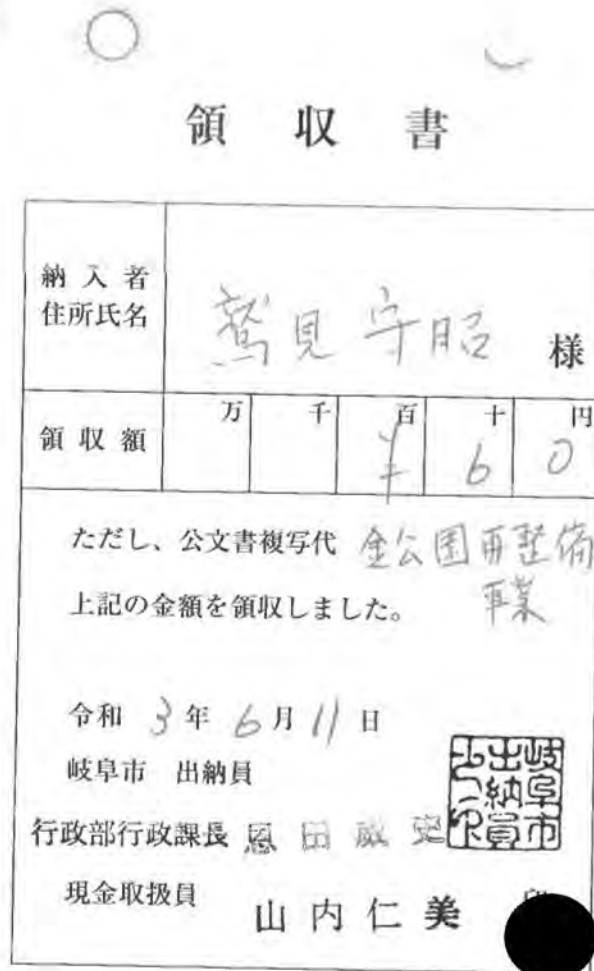 領 収 書
納入者
住所氏名
鷲見守昭 様
領収額
万 千 百 十 円
¥ 6 0
ただし、公文書複写代 金公園再整備
事業
上記の金額を領収しました。
令和 3 年 6 月 11 日
岐阜市 出納員
行政部行政課長 恩田
現金取扱員 山内仁美
岐阜市
出納員